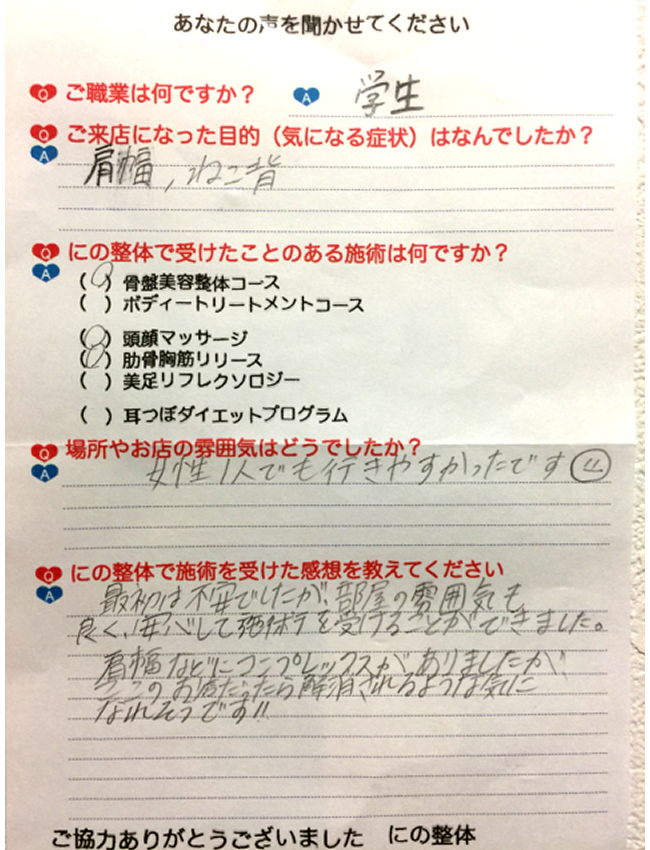 あなたの声を聞かせてください
Q ご職業は何ですか？ A 学生
Q ご来店になった目的（気になる症状）はなんでしたか？
A 肩幅，ねこ背
Q にの整体で受けたことのある施術は何ですか？
A (○) 骨盤美容整体コース
( ) ボディートリートメントコース
(○) 頭顔マッサージ
(○) 肋骨胸筋リリース
( ) 美足リフレクソロジー
( ) 耳つぼダイエットプログラム
Q 場所やお店の雰囲気はどうでしたか？
A 女性1人でも行きやすかったです
Q にの整体で施術を受けた感想を教えてください
A 最初は不安でしたが、部屋の雰囲気も
良く、安心して施術を受けることができました。
肩幅などにコンプレックスがありましたが、
ここのお店だったら解消されるような気に
なれそうです!!
ご協力ありがとうございました にの整体